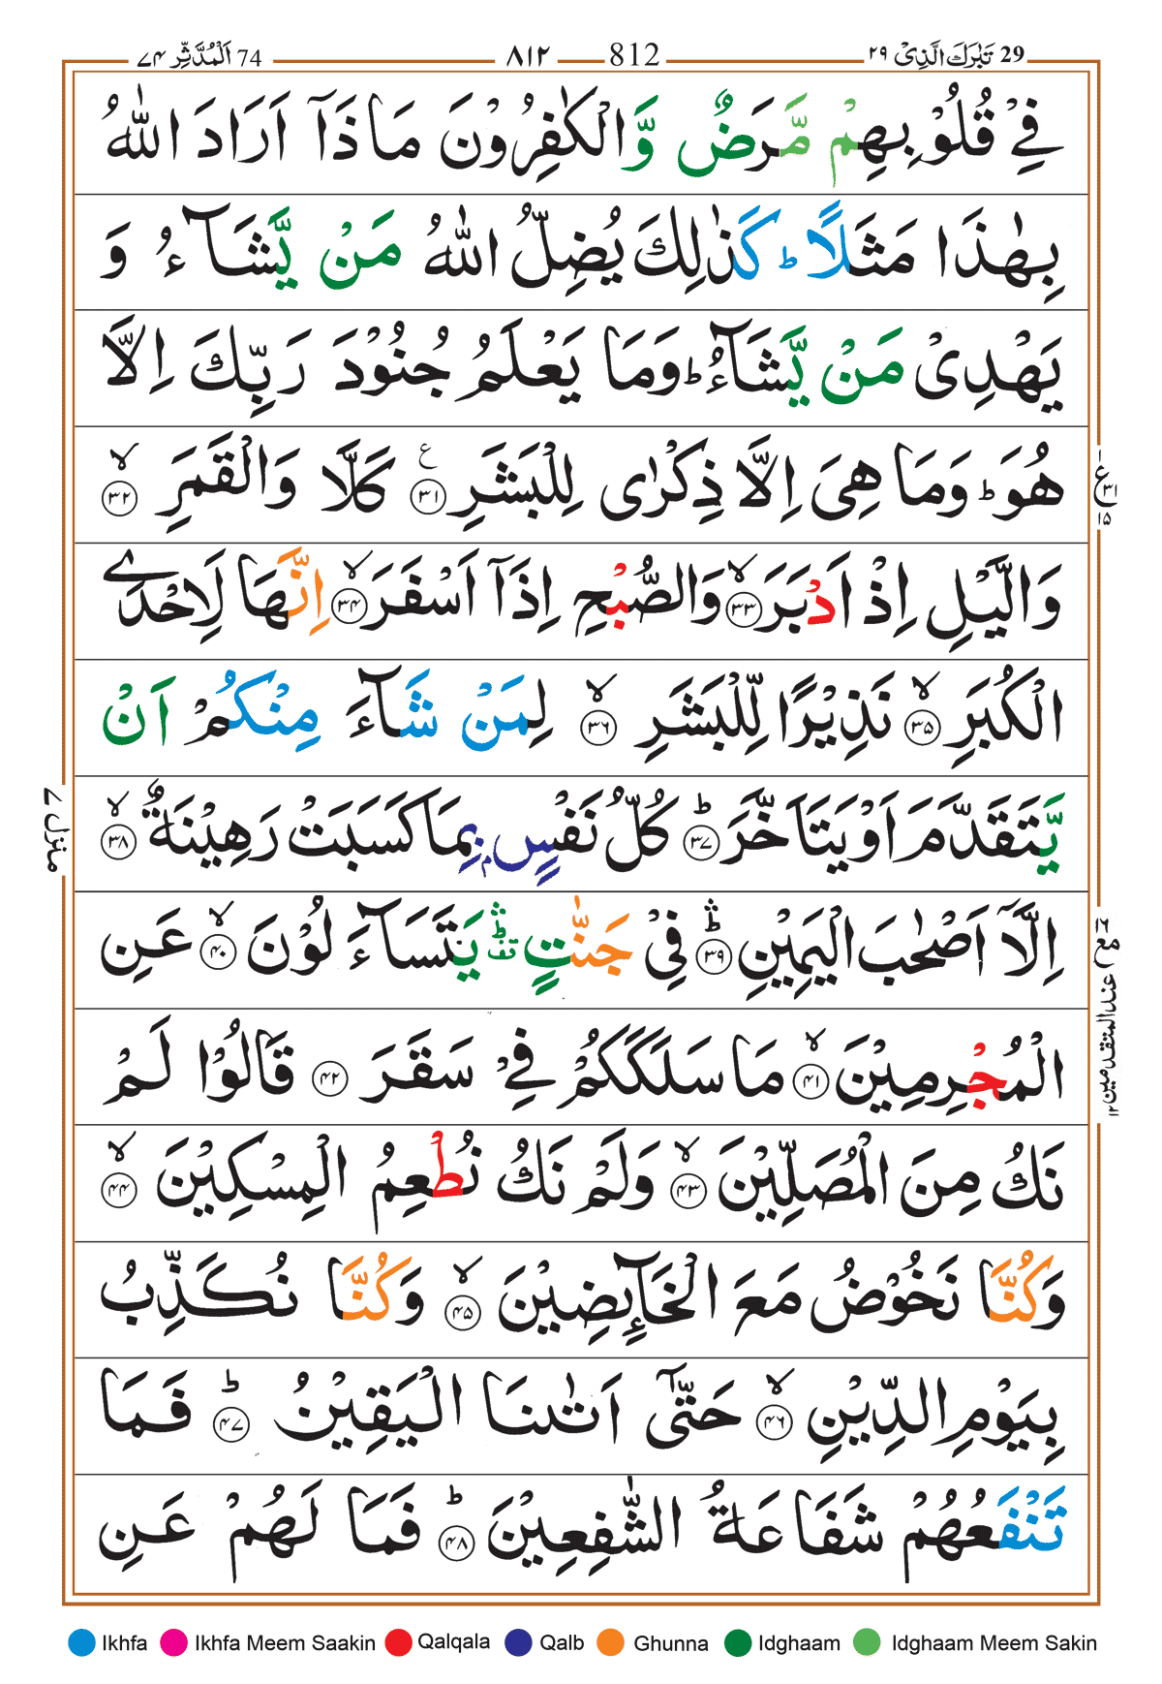 29 تَبٰرَكَ الَّذِیْ ۲۹ 812 ۸۱۲ 74 اَلْمُدَّثِّر ۷۴
فِیْ قُلُوْبِهِمْ مَّرَضٌ وَّالْكٰفِرُوْنَ مَاذَاۤ اَرَادَ اللّٰهُ
بِهٰذَا مَثَلًا ؕ كَذٰلِكَ یُضِلُّ اللّٰهُ مَنْ یَّشَآءُ وَ
یَهْدِیْ مَنْ یَّشَآءُ ؕ وَمَا یَعْلَمُ جُنُوْدَ رَبِّكَ اِلَّا
هُوَ ؕ وَمَا هِیَ اِلَّا ذِكْرٰی لِلْبَشَرِ ۳۱ ع كَلَّا وَالْقَمَرِ ۙ۳۲
وَالَّیْلِ اِذْ اَدْبَرَ ۙ۳۳ وَالصُّبْحِ اِذَاۤ اَسْفَرَ ۙ۳۴ اِنَّهَا لَاِحْدَی
الْكُبَرِ ۙ۳۵ نَذِیْرًا لِّلْبَشَرِ ۙ۳۶ لِمَنْ شَآءَ مِنْكُمْ اَنْ
یَّتَقَدَّمَ اَوْ یَتَاَخَّرَ ؕ۳۷ كُلُّ نَفْسٍۭ بِمَا كَسَبَتْ رَهِیْنَةٌ ۙ۳۸
اِلَّاۤ اَصْحٰبَ الْیَمِیْنِ ؕۛ۳۹ فِیْ جَنّٰتٍ ؕۛ قف یَتَسَآءَلُوْنَ ۙ۴۰ عَنِ
الْمُجْرِمِیْنَ ۙ۴۱ مَا سَلَكَكُمْ فِیْ سَقَرَ ۴۲ قَالُوْا لَمْ
نَكُ مِنَ الْمُصَلِّیْنَ ۙ۴۳ وَلَمْ نَكُ نُطْعِمُ الْمِسْكِیْنَ ۙ۴۴
وَكُنَّا نَخُوْضُ مَعَ الْخَآىِٕضِیْنَ ۙ۴۵ وَكُنَّا نُكَذِّبُ
بِیَوْمِ الدِّیْنِ ۙ۴۶ حَتّٰۤی اَتٰىنَا الْیَقِیْنُ ؕ۴۷ فَمَا
تَنْفَعُهُمْ شَفَاعَةُ الشّٰفِعِیْنَ ؕ۴۸ فَمَا لَهُمْ عَنِ
ع ۳۱ ۱۵
مع عند المتقدمین ۱۲
منزل ۷
Ikhfa Ikhfa Meem Saakin Qalqala Qalb Ghunna Idghaam Idghaam Meem Sakin